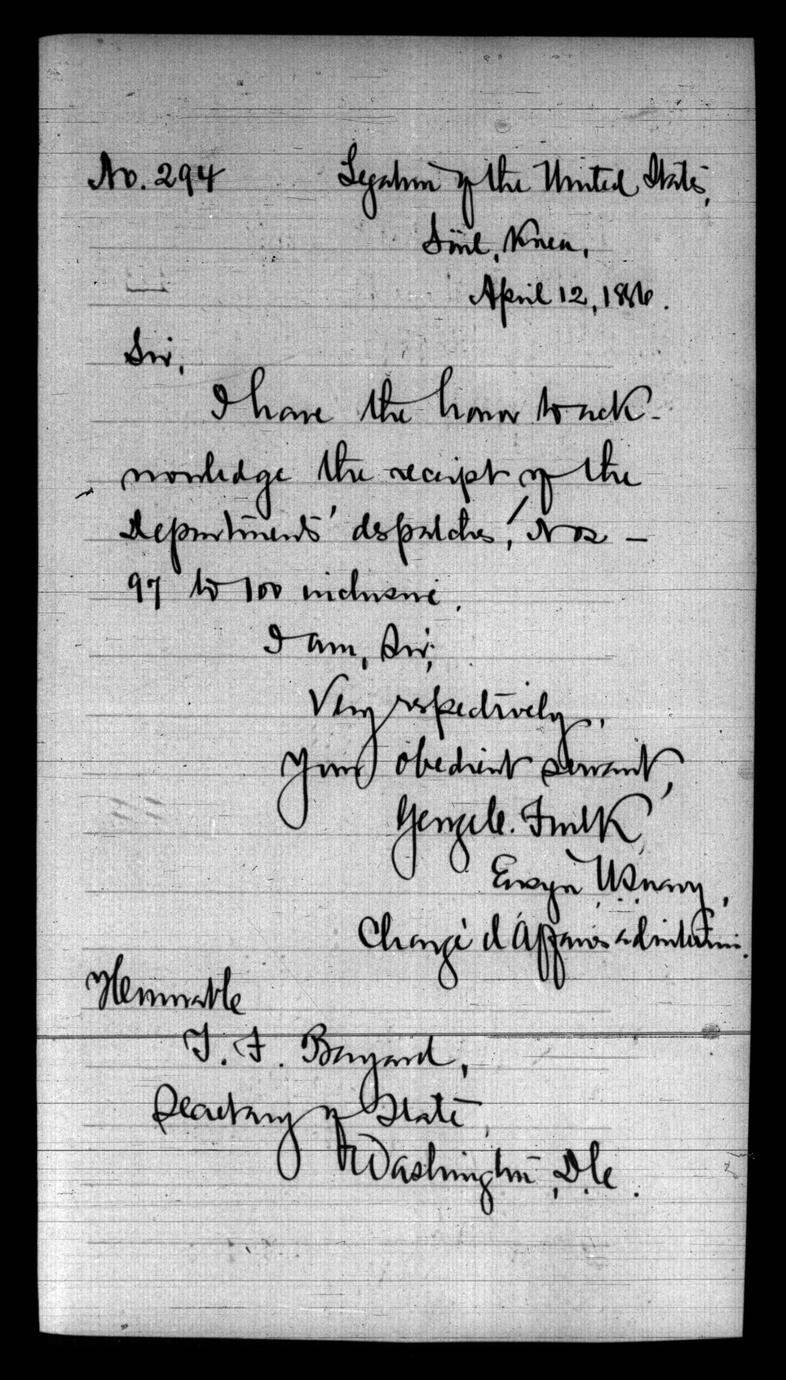 No. 294 Legation of the United States,
Söul, Korea,
April 12, 1886.
Sir,
I have the honor to ack-
nowledge the receipt of the
Departments' despatches, Nos —
97 to 100 inclusive.
I am, Sir,
Very respectively,
Your obedient servant,
George C. Foulk,
Ensign U.S. Navy,
Chargé d'Affaires ad interim.
Honorable
T. F. Bayard,
Secretary of State,
Washington, D.C.